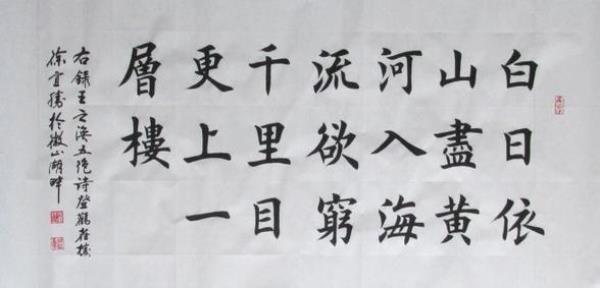 白日依
山盡黃
河入海
流欲窮
千里目
更上一
層樓
右錄王之渙五絕詩登鸛雀樓
徐宜勝於微山湖畔